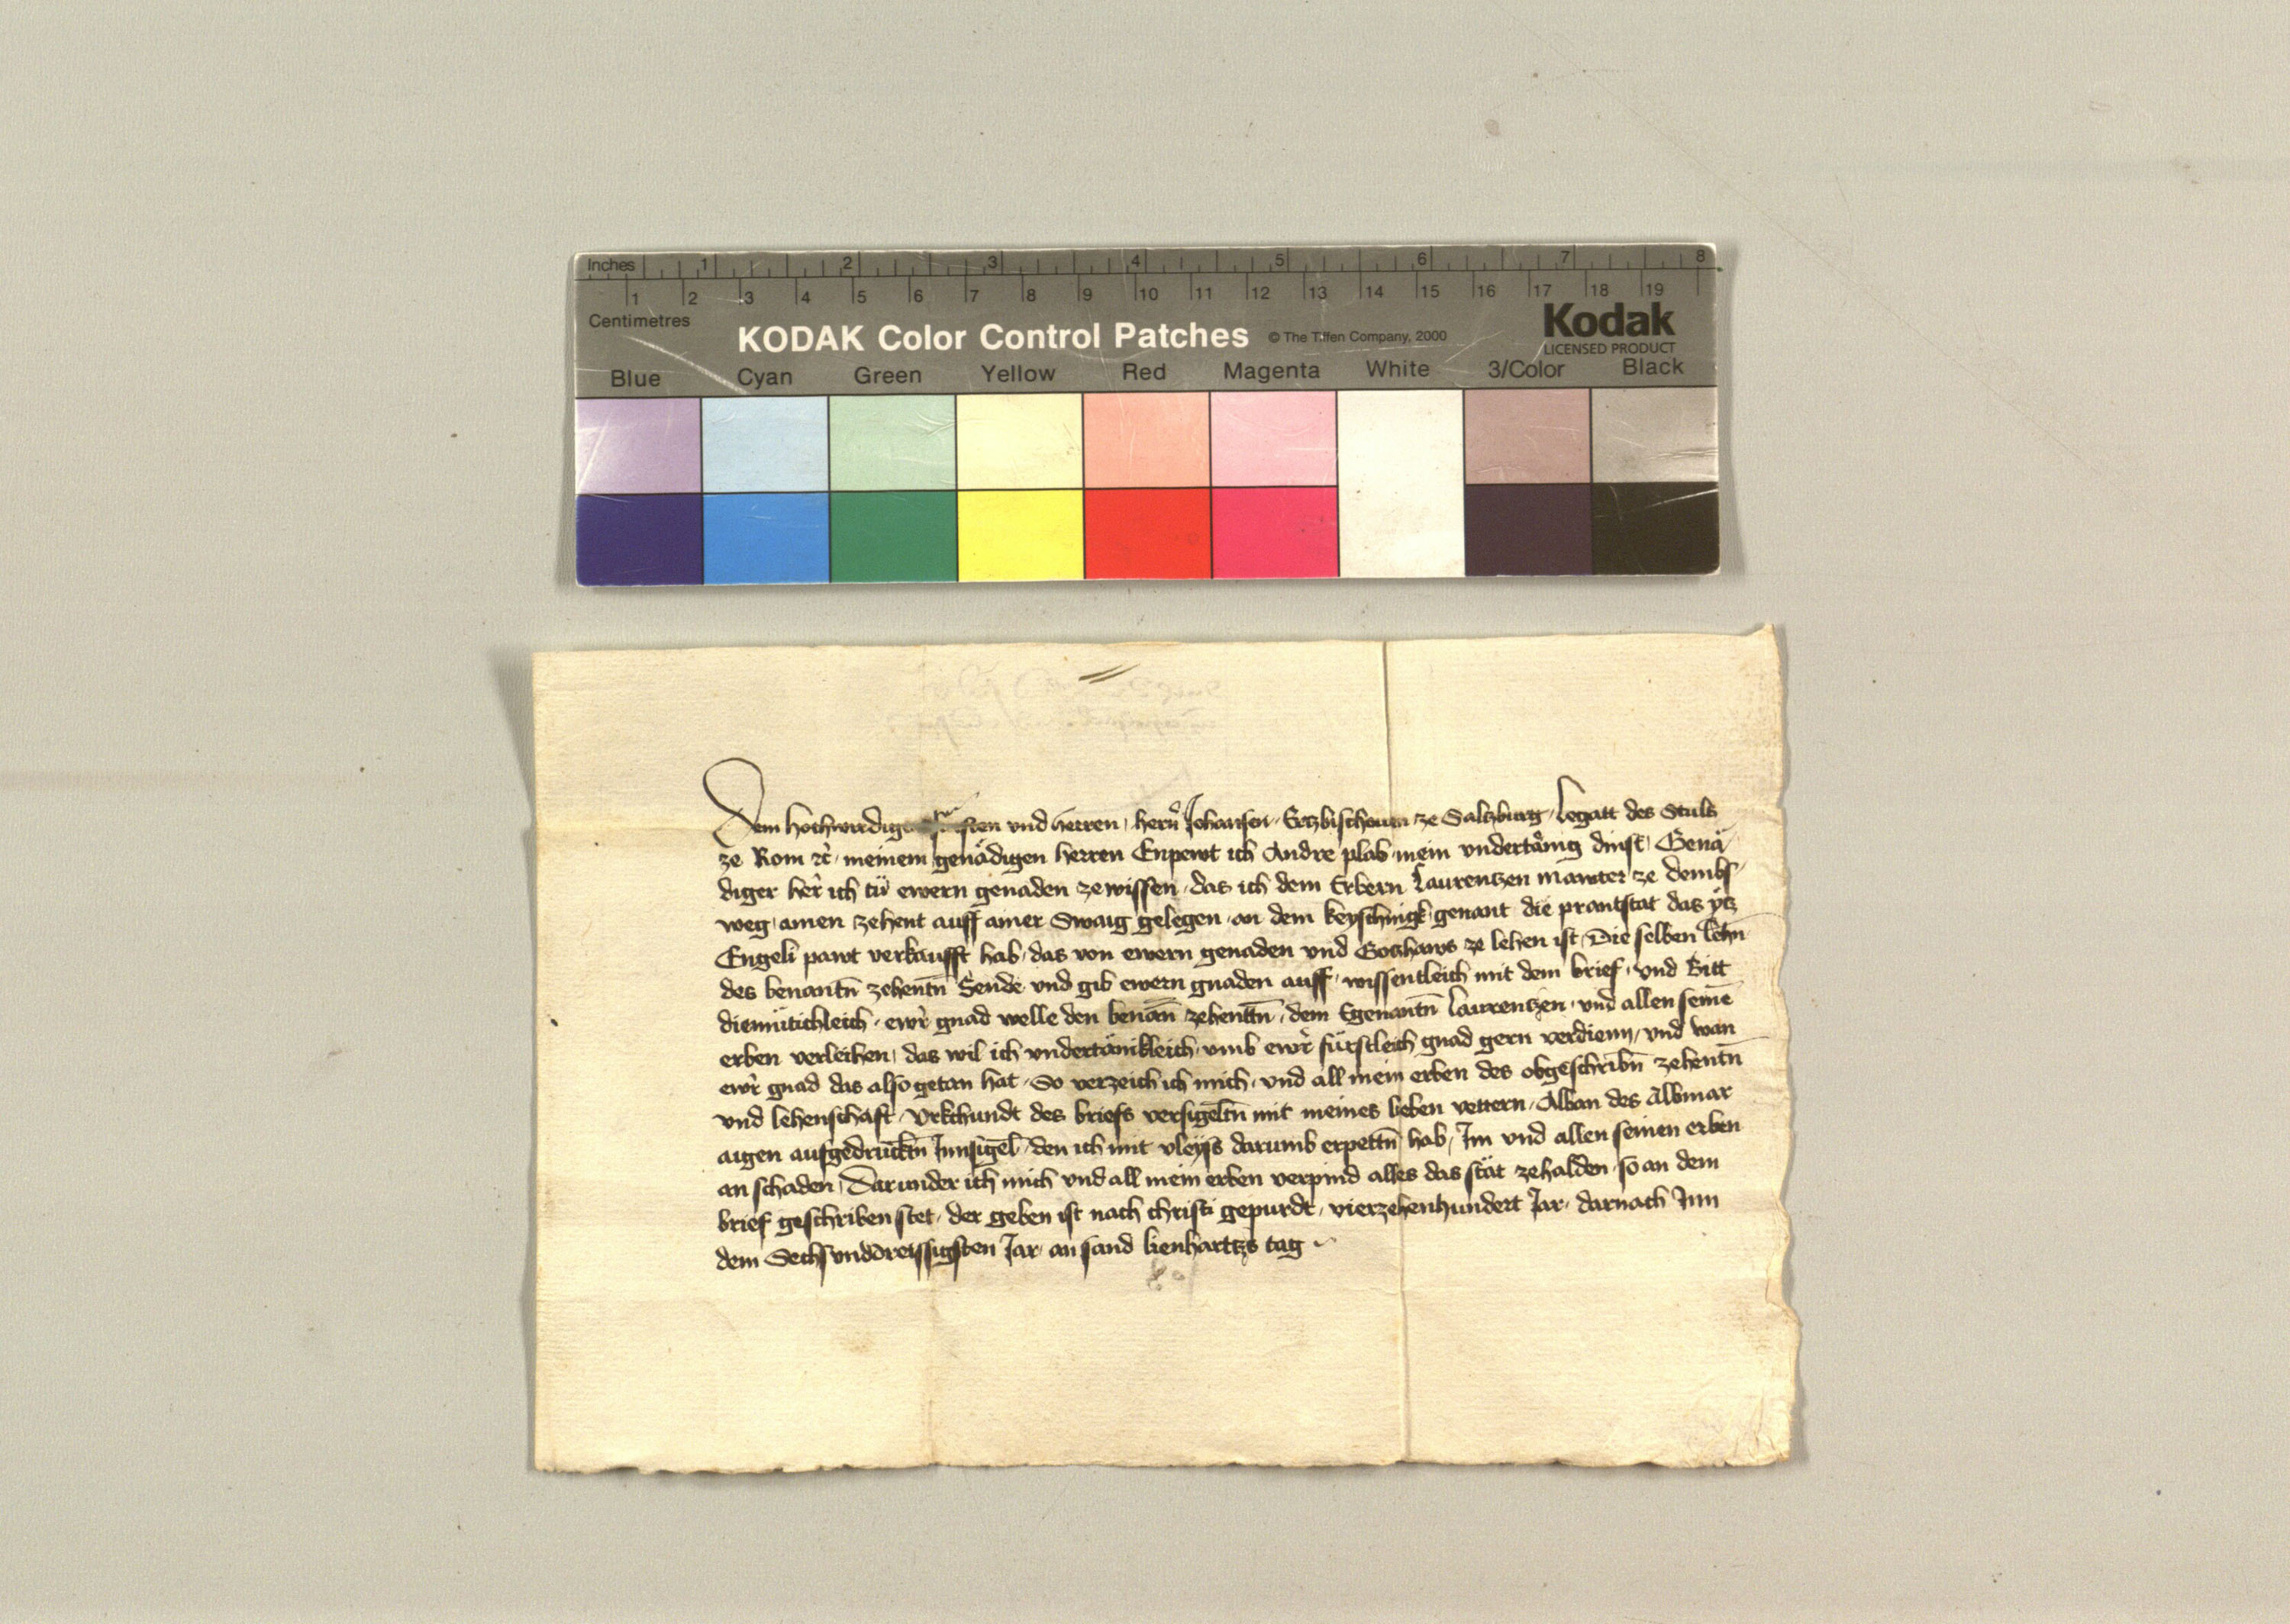 Inches 1 2 3 4 5 6 7 8
1 2 3 4 5 6 7 8 9 10 11 12 13 14 15 16 17 18 19
Centimetres
KODAK Color Control Patches © The Tiffen Company, 2000 Kodak
LICENSED PRODUCT
Blue Cyan Green Yellow Red Magenta White 3/Color Black
Dem hochwirdigen fürsten vnd herren, hern̄ Johansen Ertzbischouen ze Salzburg, Legatt des Stuls
ze Rom ꝛc̄ meinem genädigen herren Enpewt ich Andre plab mein vndertänig dinst, Genä
diger her̄ ich tü ewern genaden ze wissen, das ich dem Erbern Laurentzen mawter ze
weg, ainen zehent auff ainer Swaig gelegen, an dem genant die prantstat das ytz
Engeli pawt verkaufft hab, das von ewern genaden vnd Gotzhaws ze lehen ist, Die selben lehn̄
des benantn̄ zehentn̄ Sende vnd gib ewern gnaden auff, wissentleich mit dem brief, vnd Bitt
diemütichleich, ewr̄ gnad welle den benan̄ zehentn̄, dem Egenantn̄ Laurentzen, vnd allen seinē
erben verleihen, das wil ich vndertänikleich, vmb ewr̄ fürstleich gnad gern verdienn, vnd wan
ewr̄ gnad das also getan hat, So verzeich ich mich, vnd all mein erben des obgeschribn̄ zehentn̄
vnd lehenschaft, Vrkchundt des briefs versigeltn̄ mit meines lieben vettern, Alban des Albmar
aigen aufgedrucktn̄ Innsigel, den ich mit vleyss darumb erpettn̄ hab, Im vnd allen seinen erben
an schaden, Darunder ich mich vnd all mein erben verpind alles das stät zehalden, so an dem
brief geschriben stet, der geben ist nach christi gepurdt, vierzehenhundert Jar, darnach Inn
dem Sechsvnddreissigsten Jar, an sand lienhartzs tag